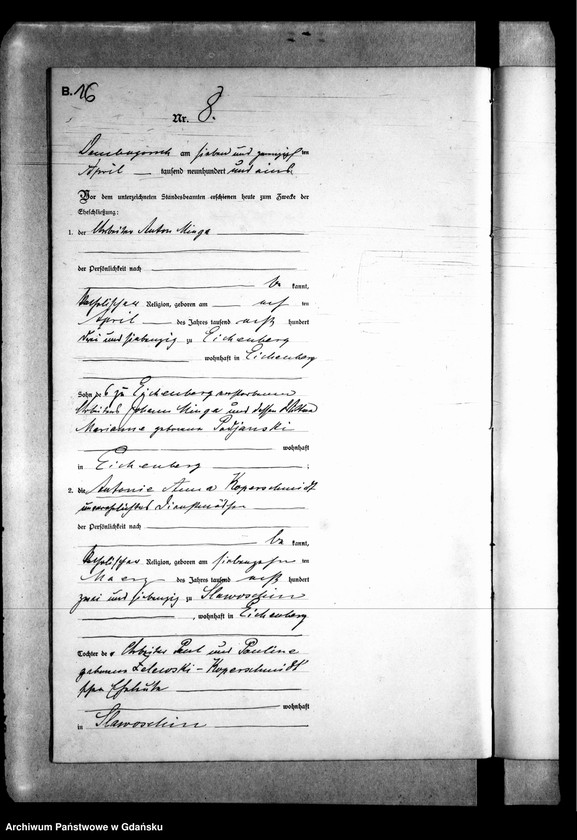 B. 16
Nr. 8.
am sieben und zwanzig ten
April tausend neunhundert und eins
Vor dem unterzeichneten Standesbeamten erschienen heute zum Zwecke der
Eheschließung:
1. der Arbeiter Anton Minga
der Persönlichkeit nach
be kannt,
katholischer Religion, geboren am acht ten
April des Jahres tausend acht hundert
drei und siebenzig zu Eichenberg
wohnhaft in Eichenberg
Sohn des zu Eichenberg verstorbenen
Arbeiters Johann Minga und dessen Wittwe
Marianne geborene
wohnhaft
in Eichenberg ;
2. die Antonie Anna Koperschmidt
unverehelichtes Dienstmädchen
der Persönlichkeit nach
be kannt,
katholischer Religion, geboren am siebenzehn ten
Maerz des Jahres tausend acht hundert
zwei und siebenzig zu Slawoschin
, wohnhaft in Eichenberg
Tochter der Arbeiter Paul und Pauline
geborene Zelewski - Koperschmidt
schen Eheleute
wohnhaft
in Slawoschin
Archiwum Państwowe w Gdańsku